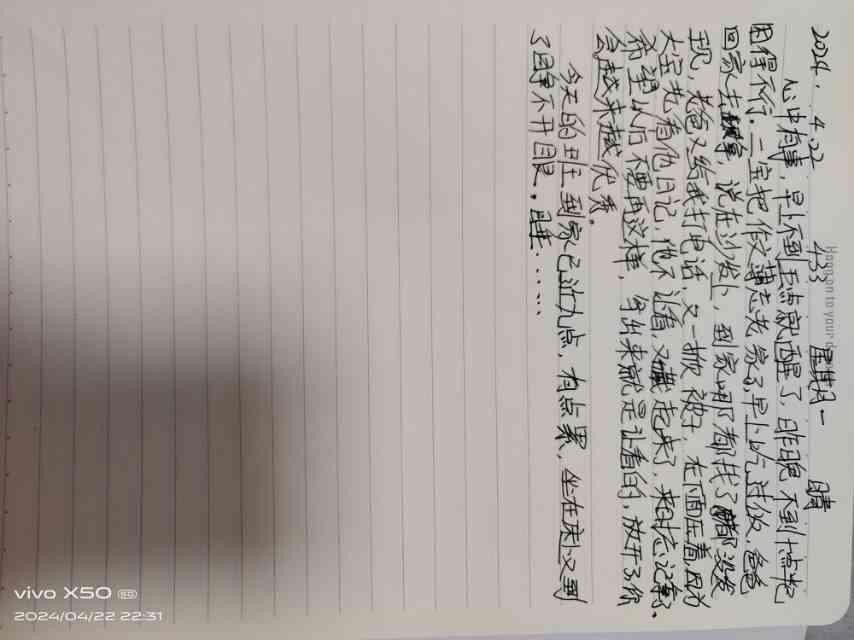 2024.4.22 433 星期一 晴
心中有事,早上不到五点就醒了,昨晚不到十点就
困得不行。二宝把作文薄忘老家了,早上吃过饭,爸爸
回家去拿,说在沙发上,到家哪都找了都没发
现,老爸又给我打电话,又一掀被子,在下面压着,因为
大宝先看他日记,他不让看,又藏起来了,来时忘记拿了。
希望以后不要再这样,拿出来就是让看的,放开了你
会越来越优秀。
今天的班上到家已近九点,有点累,坐在床上又到
了睁不开眼。睡……
Happen to your
vivo X50 5G
2024/04/22 22:31